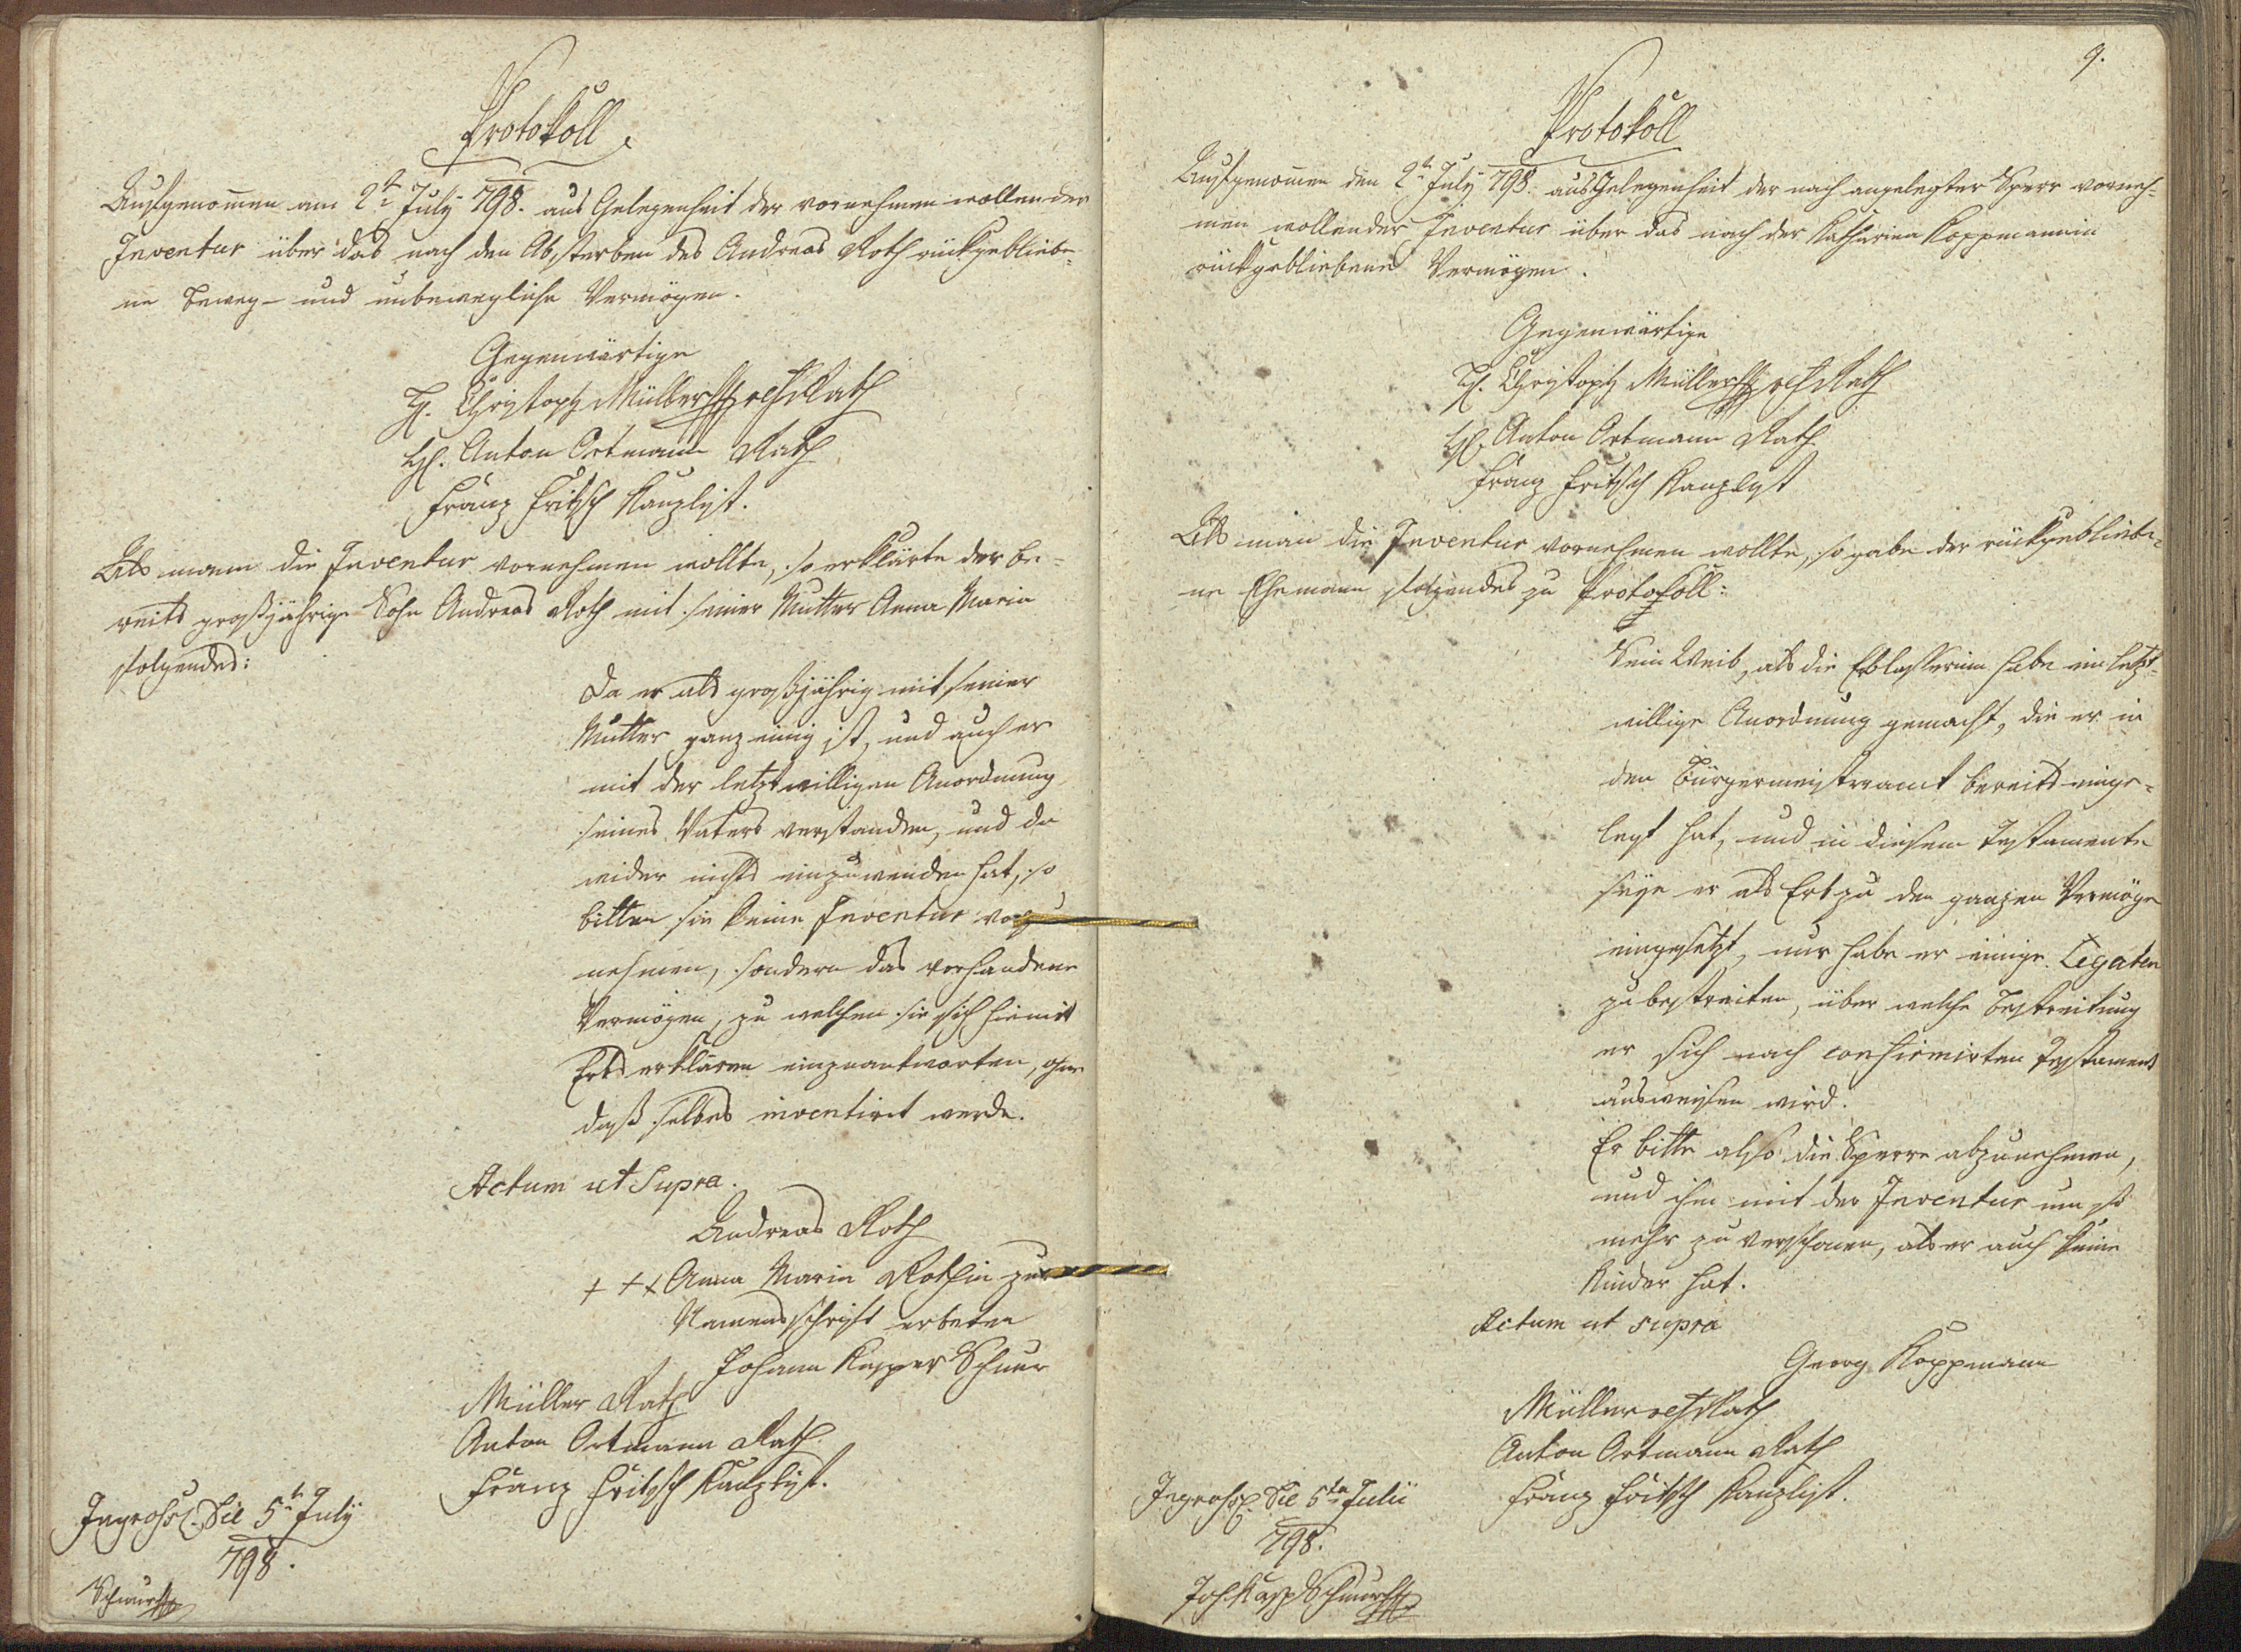 Protokoll
Aufgenom̄en am 2tn July 798. aus Gelegenheit der vornehmen wollender
Inventur über das nach den Absterben des Andreas Roth rückgebliebe-
ne beweg- und unbewegliche Vermögen.
Gegenwärtige
H. Christoph Müller Rath
H. Anton Ortmann Rath
Franz Fritsch Kanzlist.
Als mann die Inventur vornehmen wollte, so erklärte der be-
reits großjährige Sohn Andreas Roth mit seiner Mutter Anna Maria
folgendes:
Da er als großjährig mit seiner
Mutter ganz einig ist, und auch er
mit der letztwilligen Anordnung
seines Vaters verstanden, und da
wider nichts einzuwenden hat, so
bitten sie keine Inventur vorzu
nehmen, sondern das vorhandene
Vermögen, zu welchen sie sich hiemit
Erbs erklären einzuantworten, ohne
daß selbes inventirt werde.
Actum ut Supra.
Andreas Roth
+ + + Anna Maria Rothin zur
Namensschrift erbeten
Johann Kasper Schnur
Müller Rath
Anton Ortmann Rath
Franz Fritsch Kanzlist.
Ingross. Die 5tn July
798.
Schnur
9.
Protokoll
Aufgenom̄en den 2tn July 798. aus Gelegenheit der nach angelegter Sperr vorneh-
men wollender Inventur über das nach der Katharina Koppmannin
rückgebliebene Vermögen.
Gegenwärtige
H. Christoph Müller Rath
H. Anton Ortmann Rath
Franz Fritsch Kanzlist
Als man die Inventur vornehmen wollte, so gabe der rückgebliebe-
ne Ehemann folgendes zu Protokoll:
Sein Weib, als die Erblasserinn habe ein letzt-
willige Anordnung gemacht, die er in
den Bürgermeisteramt bereits einge-
legt hat, und in diesem Testamente
seye er als Erb zu den ganzen Vermögen
eingesetzt, nur habe er einige Legaten
zu bestreiten, über welche Bestreitung
er sich nach confirmirten Testament
ausweisen wird.
Er bitte also die Sperre abzunehmen,
und ihn mit der Inventur um so
mehr zu verschonen, als er auch keine
Kinder hat.
Actum ut supra
Georg Koppmann
Müller Rath
Anton Ortmann Rath
Franz Fritsch Kanzlist.
Ingross. Die 5ta Julii
798.
Joh Kasp Schnur